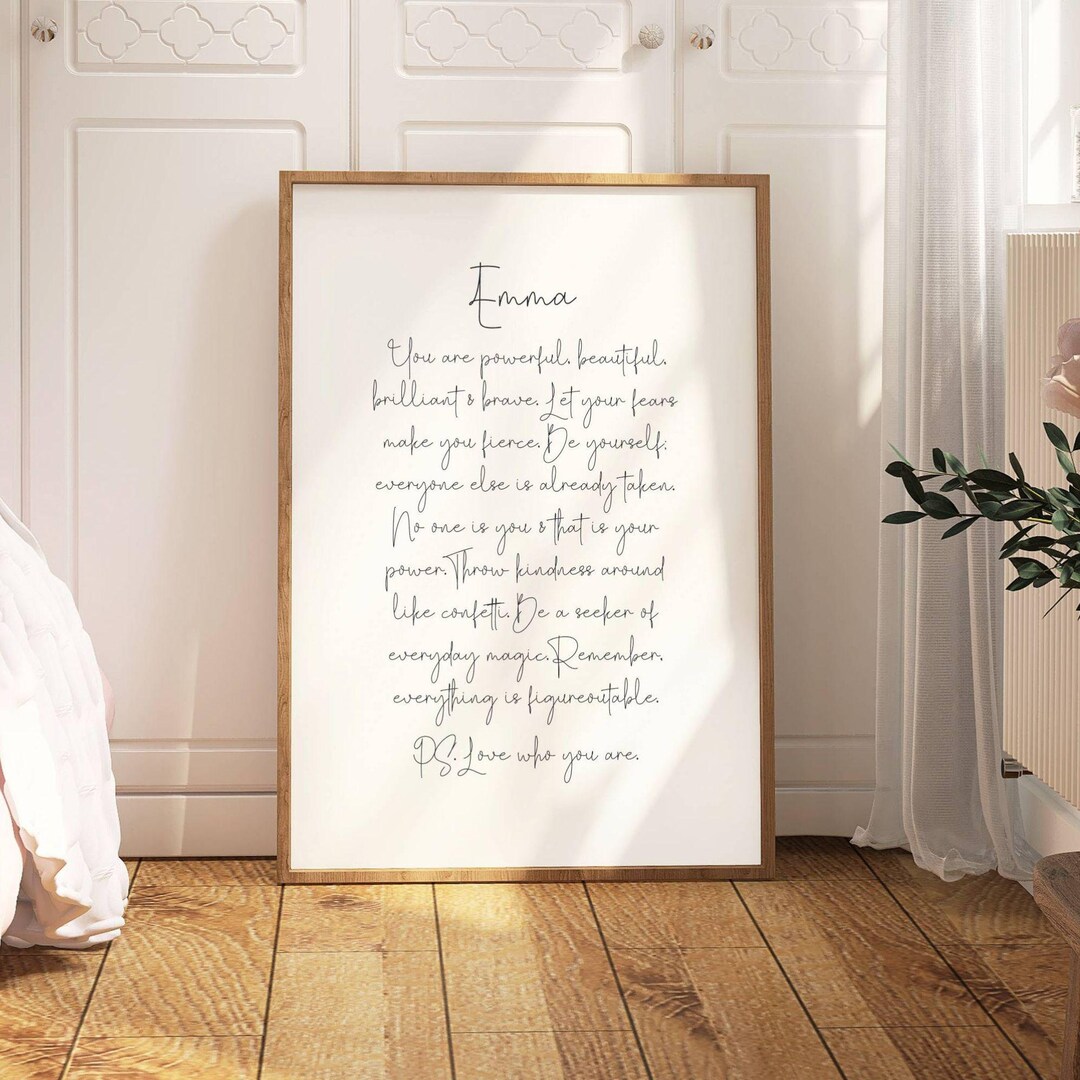 Emma
You are powerful, beautiful,
brilliant & brave. Let your fears
make you fierce. Be yourself;
everyone else is already taken.
No one is you & that is your
power. Throw kindness around
like confetti. Be a seeker of
everyday magic. Remember,
everything is figureoutable.
PS. Love who you are.